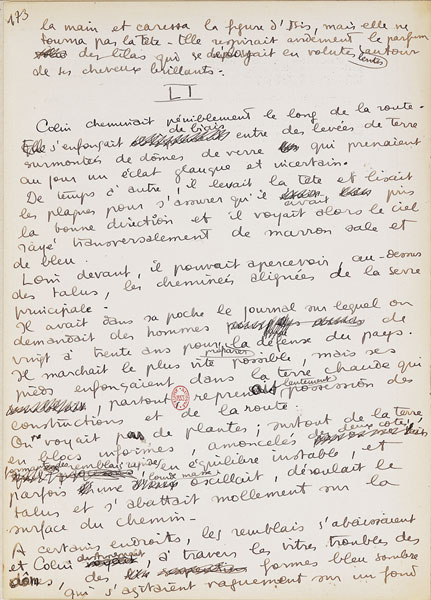 173
la main et caressa la figure d'Isis, mais elle ne
tourna pas la tête - Elle respirait avidement le parfum
des lilas qui se déployait en volutes lentes autour
de ses cheveux brillants.
LI
Colin cheminait péniblement le long de la route.
Elle s'enfonçait de biais entre des levées de terre
surmontés de dômes de verre qui prenaient
au jour un éclat glauque et incertain.
De temps à autre, il levait la tête et lisait
les plaques pour s'assurer qu'il avait pris
la bonne direction et il voyait alors le ciel
rayé transversalement de marron sale et
de bleu.
Loin devant, il pouvait apercevoir, au-dessus
des talus, les cheminées alignées de la serre
principale.
Il avait dans sa poche le journal sur lequel on
demandait des hommes de
vingt à trente ans pour préparer la défense du pays.
Il marchait le plus vite possible, mais ses
pieds enfonçaient dans la terre chaude qui
, partout, reprenait lentement possession des
constructions et de la route.
On ne voyait pas de plantes ; surtout de la terre
en blocs informes, amoncelés des deux côtés
en équilibre instable, et
parfois une lourde masse oscillait, déroulait le
talus et s'abattait mollement sur la
surface du chemin -
A certains endroits, les remblais s'abaissaient
et Colin distinguait, à travers les vitres troubles des
dômes, des formes bleu sombre
qui s'agitaient vaguement sur un fond